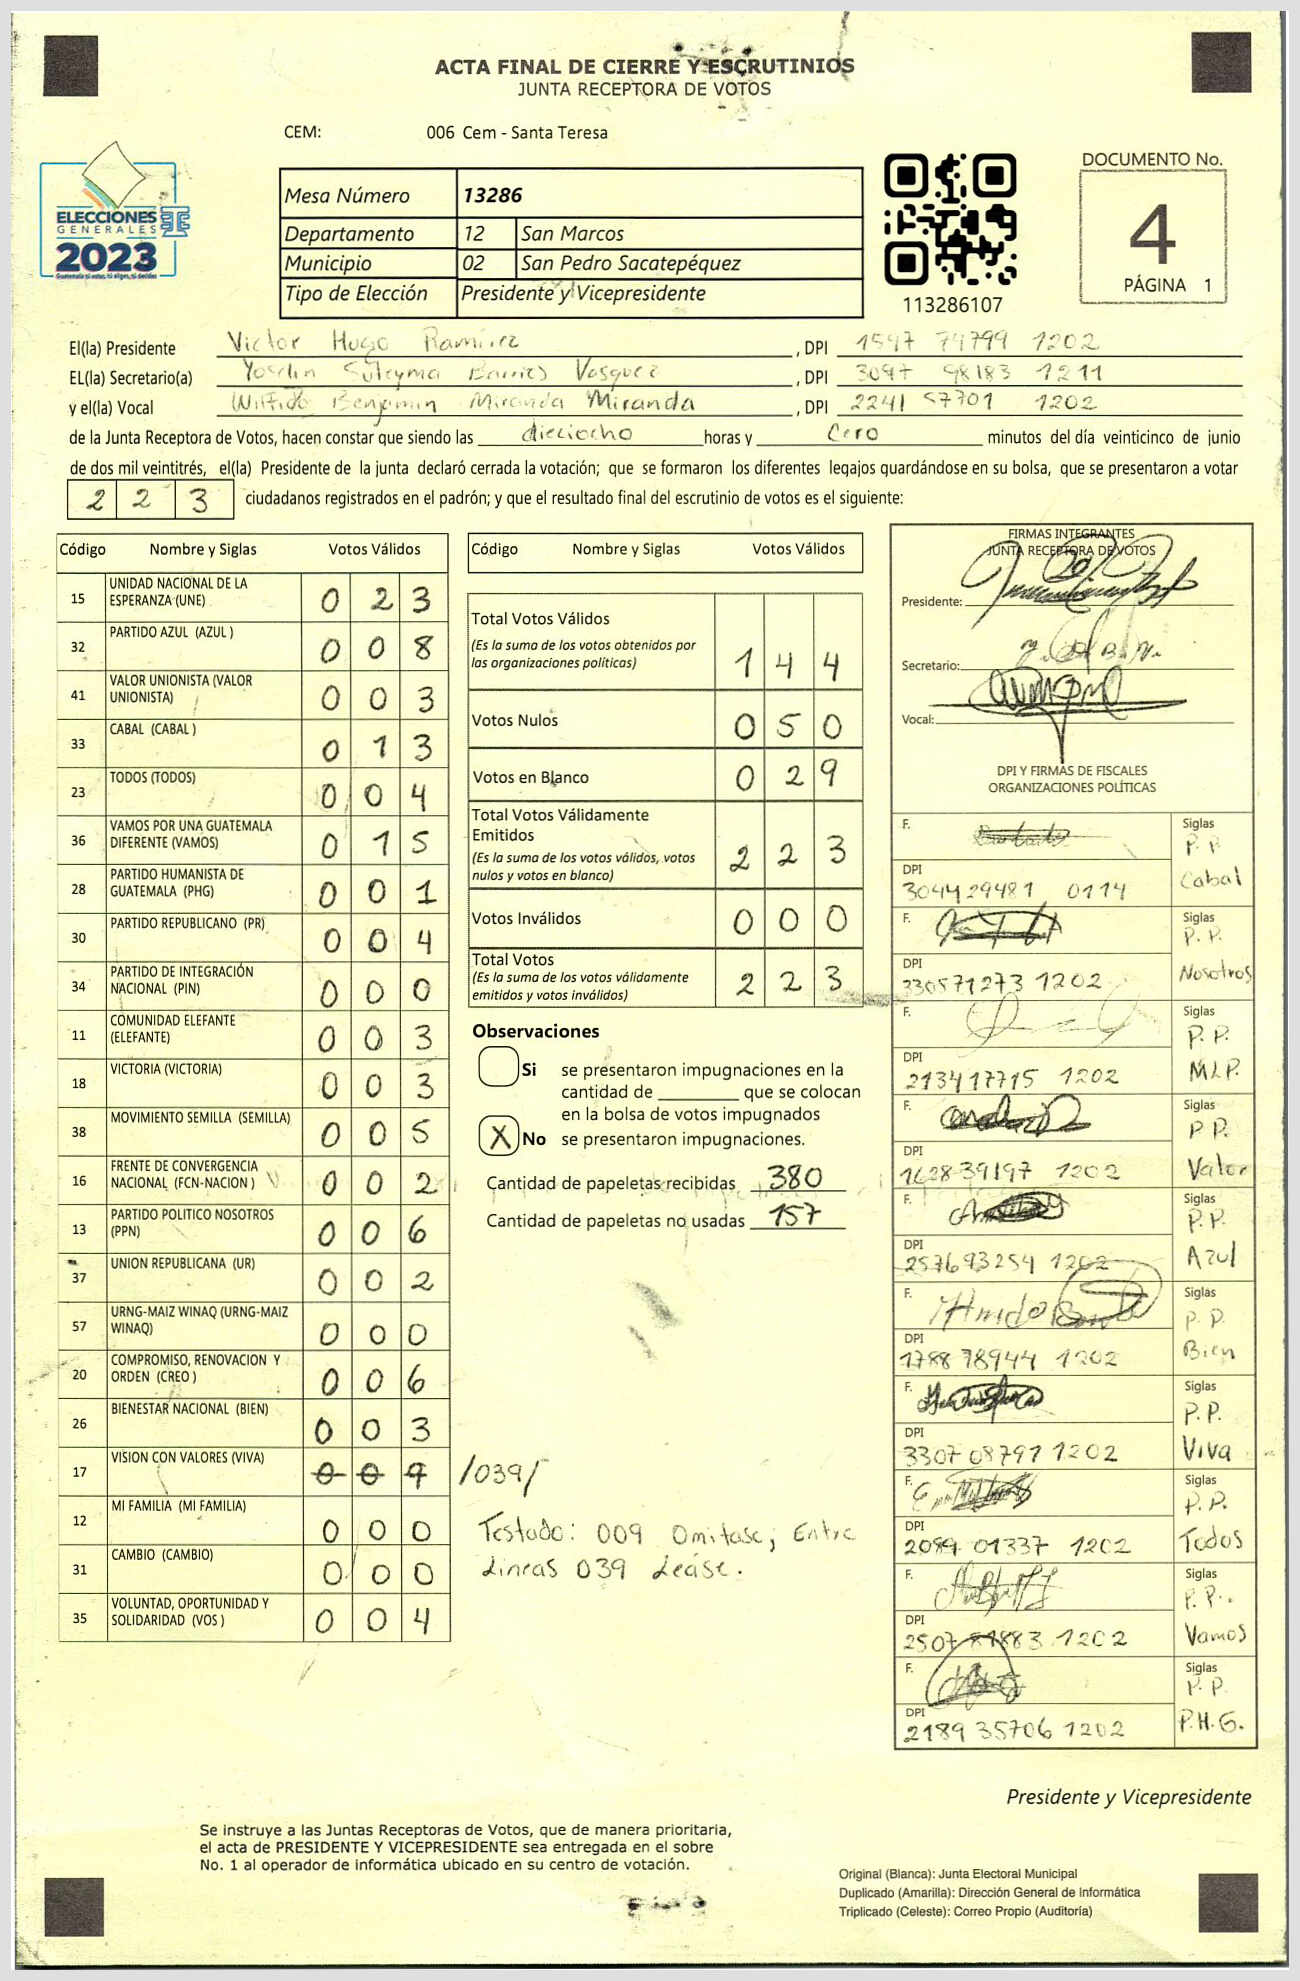 ACTA FINAL DE CIERRE Y ESCRUTINIOS
JUNTA RECEPTORA DE VOTOS
CEM: 006 Cem - Santa Teresa
ELECCIONES
GENERALES
2023
Guatemala tú votas, tú eliges, tú decides
Mesa Número 13286
Departamento 12 San Marcos
Municipio 02 San Pedro Sacatepéquez
Tipo de Elección Presidente y Vicepresidente
113286107
DOCUMENTO No.
4
PÁGINA 1
El(la) Presidente Victor Hugo Ramírez, DPI 1547 74799 1202
EL(la) Secretario(a) Yoselin Suleyma Barrios Vasquez, DPI 3097 98183 1211
y el(la) Vocal Wilfido Benjamin Miranda Miranda, DPI 2241 57701 1202
de la Junta Receptora de Votos, hacen constar que siendo las dieciocho horas y Cero minutos del día veinticinco de junio
de dos mil veintitrés, el(la) Presidente de la junta declaró cerrada la votación; que se formaron los diferentes legajos guardándose en su bolsa, que se presentaron a votar
223 ciudadanos registrados en el padrón; y que el resultado final del escrutinio de votos es el siguiente:
Código Nombre y Siglas Votos Válidos
15 UNIDAD NACIONAL DE LA ESPERANZA (UNE) 0 2 3
32 PARTIDO AZUL (AZUL ) 0 0 8
41 VALOR UNIONISTA (VALOR UNIONISTA) 0 0 3
33 CABAL (CABAL ) 0 1 3
23 TODOS (TODOS) 0 0 4
36 VAMOS POR UNA GUATEMALA DIFERENTE (VAMOS) 0 1 5
28 PARTIDO HUMANISTA DE GUATEMALA (PHG) 0 0 1
30 PARTIDO REPUBLICANO (PR) 0 0 4
34 PARTIDO DE INTEGRACIÓN NACIONAL (PIN) 0 0 0
11 COMUNIDAD ELEFANTE (ELEFANTE) 0 0 3
18 VICTORIA (VICTORIA) 0 0 3
38 MOVIMIENTO SEMILLA (SEMILLA) 0 0 5
16 FRENTE DE CONVERGENCIA NACIONAL (FCN-NACION ) 0 0 2
13 PARTIDO POLITICO NOSOTROS (PPN) 0 0 6
37 UNION REPUBLICANA (UR) 0 0 2
57 URNG-MAIZ WINAQ (URNG-MAIZ WINAQ) 0 0 0
20 COMPROMISO, RENOVACION Y ORDEN (CREO ) 0 0 6
26 BIENESTAR NACIONAL (BIEN) 0 0 3
17 VISION CON VALORES (VIVA) 0 0 9 /039/
12 MI FAMILIA (MI FAMILIA) 0 0 0
31 CAMBIO (CAMBIO) 0 0 0
35 VOLUNTAD, OPORTUNIDAD Y SOLIDARIDAD (VOS ) 0 0 4
Código Nombre y Siglas Votos Válidos
Total Votos Válidos
(Es la suma de los votos obtenidos por
las organizaciones políticas) 1 4 4
Votos Nulos 0 5 0
Votos en Blanco 0 2 9
Total Votos Válidamente
Emitidos
(Es la suma de los votos válidos, votos
nulos y votos en blanco) 2 2 3
Votos Inválidos 0 0 0
Total Votos
(Es la suma de los votos válidamente
emitidos y votos inválidos) 2 2 3
Observaciones
Si se presentaron impugnaciones en la
cantidad de ________ que se colocan
en la bolsa de votos impugnados
X No se presentaron impugnaciones.
Cantidad de papeletas recibidas 380
Cantidad de papeletas no usadas 157
Testado: 009 Omitase; Entre
Lineas 039 Léase.
FIRMAS INTEGRANTES
JUNTA RECEPTORA DE VOTOS
Presidente:
Secretario:
Vocal:
DPI Y FIRMAS DE FISCALES
ORGANIZACIONES POLÍTICAS
F. Siglas P.P. Cabal
DPI 3044 29481 0114
F. Siglas P.P. Nosotros
DPI 330571273 1202
F. Siglas P.P. MLP.
DPI 213417715 1202
F. Siglas P.P. Valor
DPI 1628 39197 1202
F. Siglas P.P. Azul
DPI 257693254 1202
F. Siglas P.P. Bien
DPI 1788 78944 1202
F. Siglas P.P. Viva
DPI 3307 08791 1202
F. Siglas P.P. Todos
DPI 2089 01337 1202
F. Siglas P.P. Vamos
DPI 2507 81883 1202
F. Siglas P.P. P.H.G.
DPI 2189 35706 1202
Presidente y Vicepresidente
Se instruye a las Juntas Receptoras de Votos, que de manera prioritaria,
el acta de PRESIDENTE Y VICEPRESIDENTE sea entregada en el sobre
No. 1 al operador de informática ubicado en su centro de votación.
Original (Blanca): Junta Electoral Municipal
Duplicado (Amarilla): Dirección General de Informática
Triplicado (Celeste): Correo Propio (Auditoría)